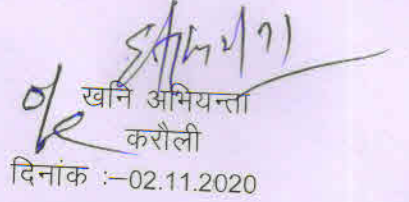 खनि अभियन्ता
करौली
दिनांक :–02.11.2020